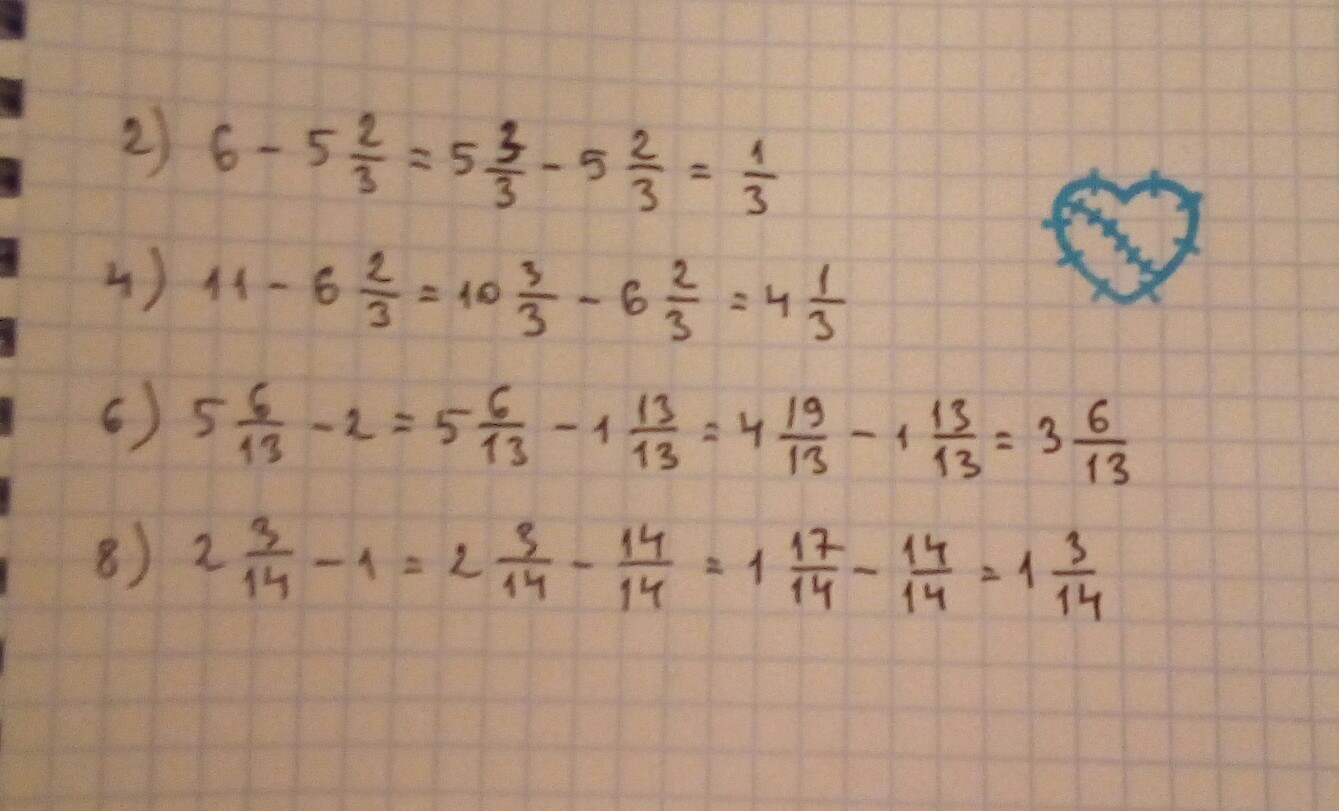 2) 6 - 5 2/3 = 5 3/3 - 5 2/3 = 1/3
4) 11 - 6 2/3 = 10 3/3 - 6 2/3 = 4 1/3
6) 5 6/13 - 2 = 5 6/13 - 1 13/13 = 4 19/13 - 1 13/13 = 3 6/13
8) 2 3/14 - 1 = 2 3/14 - 14/14 = 1 17/14 - 14/14 = 1 3/14